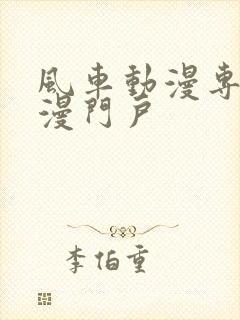 風車動漫專
漫門戶
李伯重